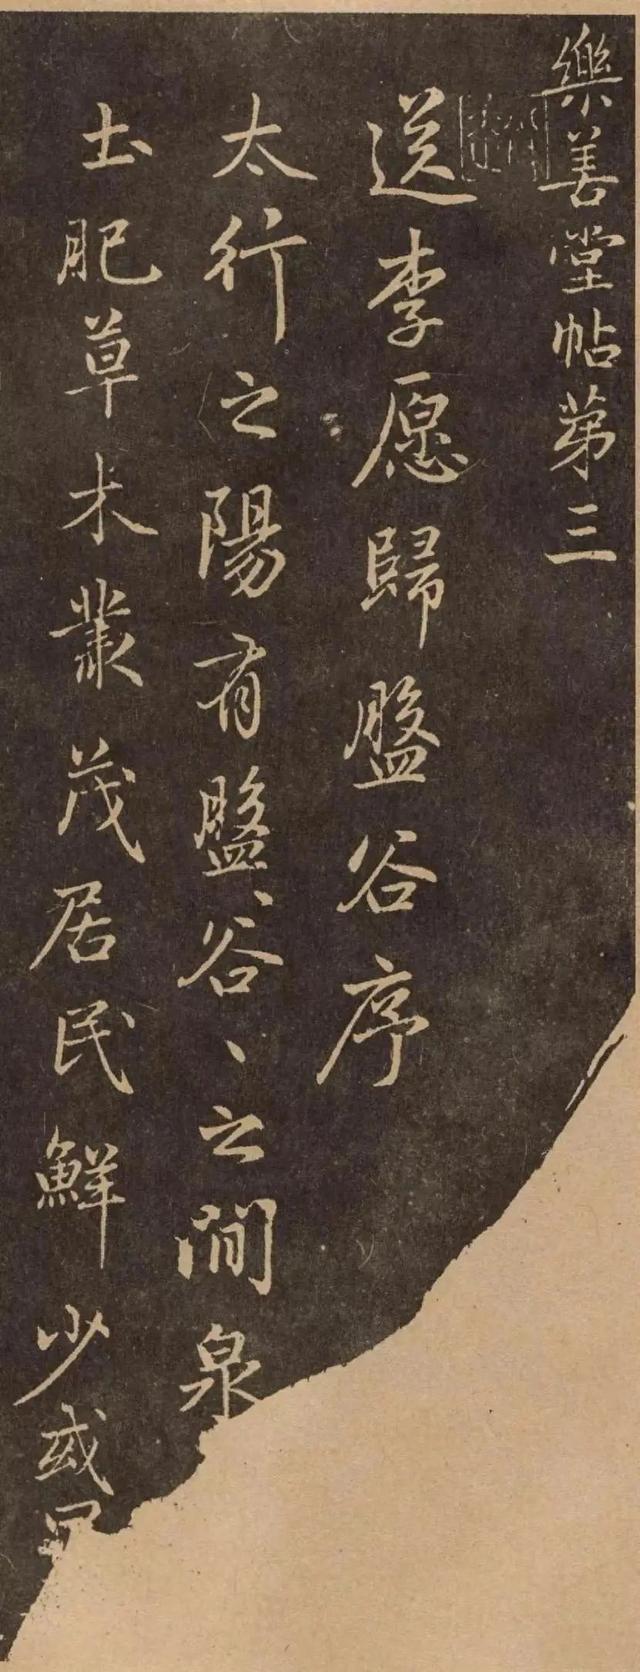 樂善堂帖第三
送李愿歸盤谷序
太行之陽有盤谷〻之間泉
土肥草木叢茂居民鮮少或曰